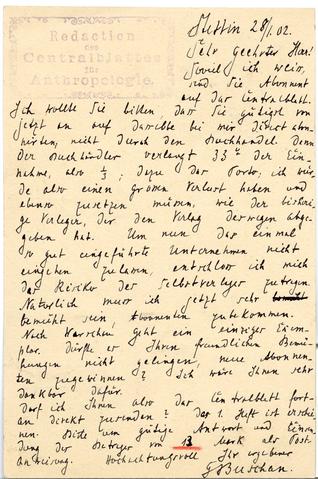 Redaction
des
Centralblattes
für
Anthropologie.
Stettin 28/1.02.
Sehr geehrter Herr!
Soviel ich weiss,
sind Sie Abonnent
auf das Centralblatt.
Ich wollte Sie bitten, dass Sie gütigst von
jetzt an auf dasselbe bei mir direct abon-
niren, nicht durch den Buchhandel. Denn
der Buchhändler verlangt 33% der Ein-
nahme, also 1/3; dazu das Porto, ich wür-
de also einen grossen Verlust haben und
ebenso zusetzen müssen, wie der bisheri-
ge Verleger, der den Verlag deswegen abge-
geben hat. Um nun das einmal
so gut eingeführte Unternehmen nicht
eingehen zu lassen, entschloss ich mich
das Risiko des Selbstverlages zu tragen.
Natürlich muss ich jetzt sehr
bemüht sein, Abonnenten zu bekommen.
Nach Warschau geht ein einziges Exem-
plar. Dürfte es Ihren freundlichen Bemü-
hungen nicht gelingen, neue Abonnen-
ten zu gewinnen? Ich wäre Ihnen sehr
dankbar dafür.
Darf ich Ihnen also das Centralblatt fort-
an direkt zusenden? Das 1. Heft ist erschie-
nen. Bitte um gütige Antwort und Einsen-
dung des Betrages von 13 Mark als Post-
anweisung. Hochachtungsvoll Ihr ergebener
GBuschan.